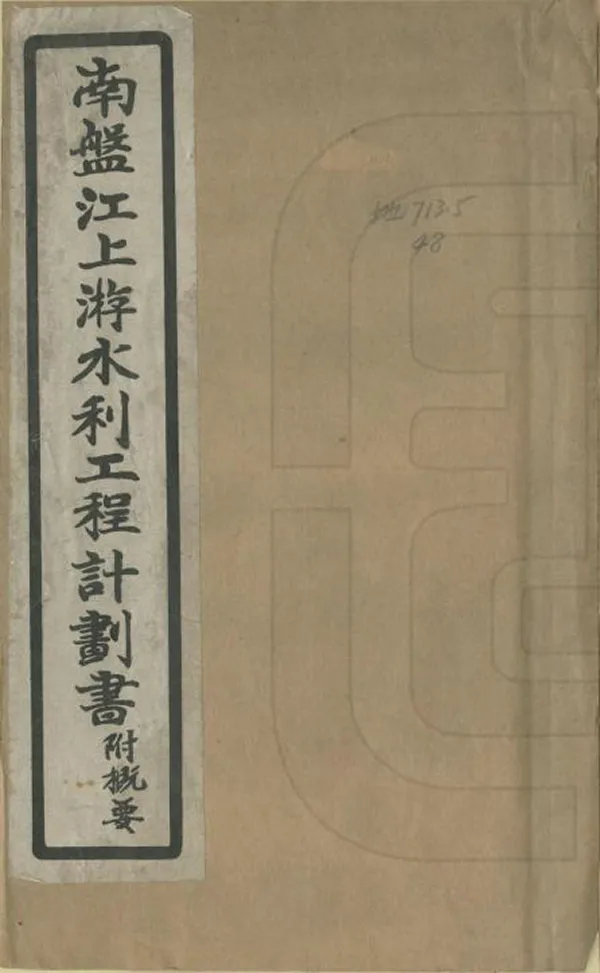 南盤江上游水利工程計劃書
附概要
地713.5
48